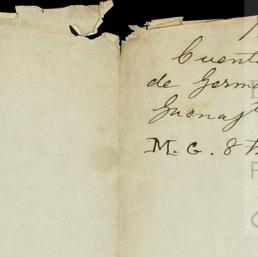 Cuent
de Germ
Guanaj
M. G. 8